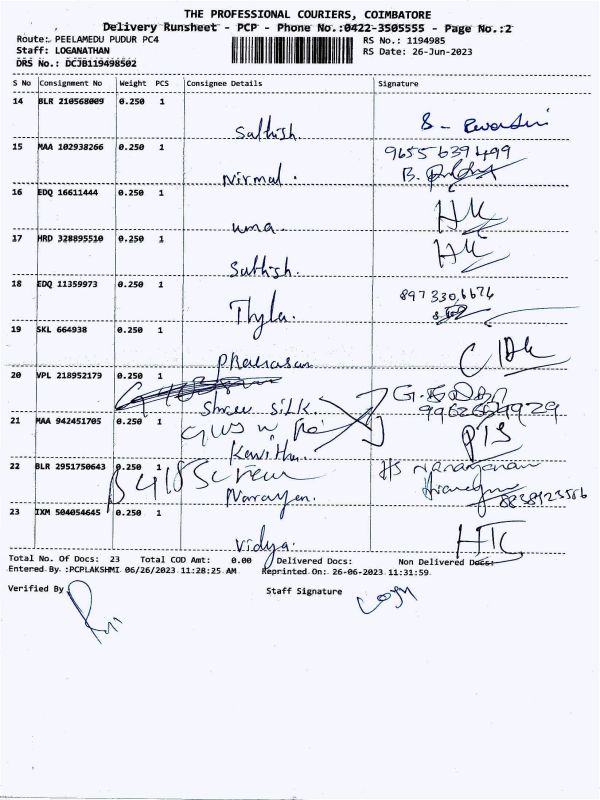 THE PROFESSIONAL COURIERS, COIMBATORE
Delivery Runsheet - PCP - Phone No.:0422-3505555 - Page No.:2
Route: PEELAMEDU PUDUR PC4
RS No.: 1194985
Staff: LOGANATHAN
RS Date: 26-Jun-2023
DRS No.: DCJB119498502
S No Consignment No Weight PCS Consignee Details Signature
14 BLR 210568009 0.250 1
Sathish.
15 MAA 102938266 0.250 1
9655639499
Nirmal.
B.
16 EDQ 16611444 0.250 1
HK
uma.
17 HRD 328895510 0.250 1
HK
Sathish.
18 EDQ 11359973 0.250 1
Thyla.
19 SKL 664938 0.250 1
20 VPL 218952179 0.250 1
Shree silk.
21 MAA 942451705 0.250 1
Kavitha.
22 BLR 2951750643 0.250 1
Narayan.
8838923586
23 IXM 504054645 0.250 1
Vidya.
Total No. Of Docs: 23 Total COD Amt: 0.00 Delivered Docs: Non Delivered Docs:
Entered By :PCPLAKSHMI 06/26/2023 11:28:25 AM Reprinted On: 26-06-2023 11:31:59
Verified By
Staff Signature